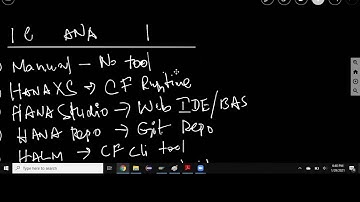 ANA
Manual - No tool
HANA XS → CF Runtime
HANA Studio → Web IDE/BAS
HANA Repo → Git Repo
HALM → CF Cli tool
4:46 PM
1/26/2021